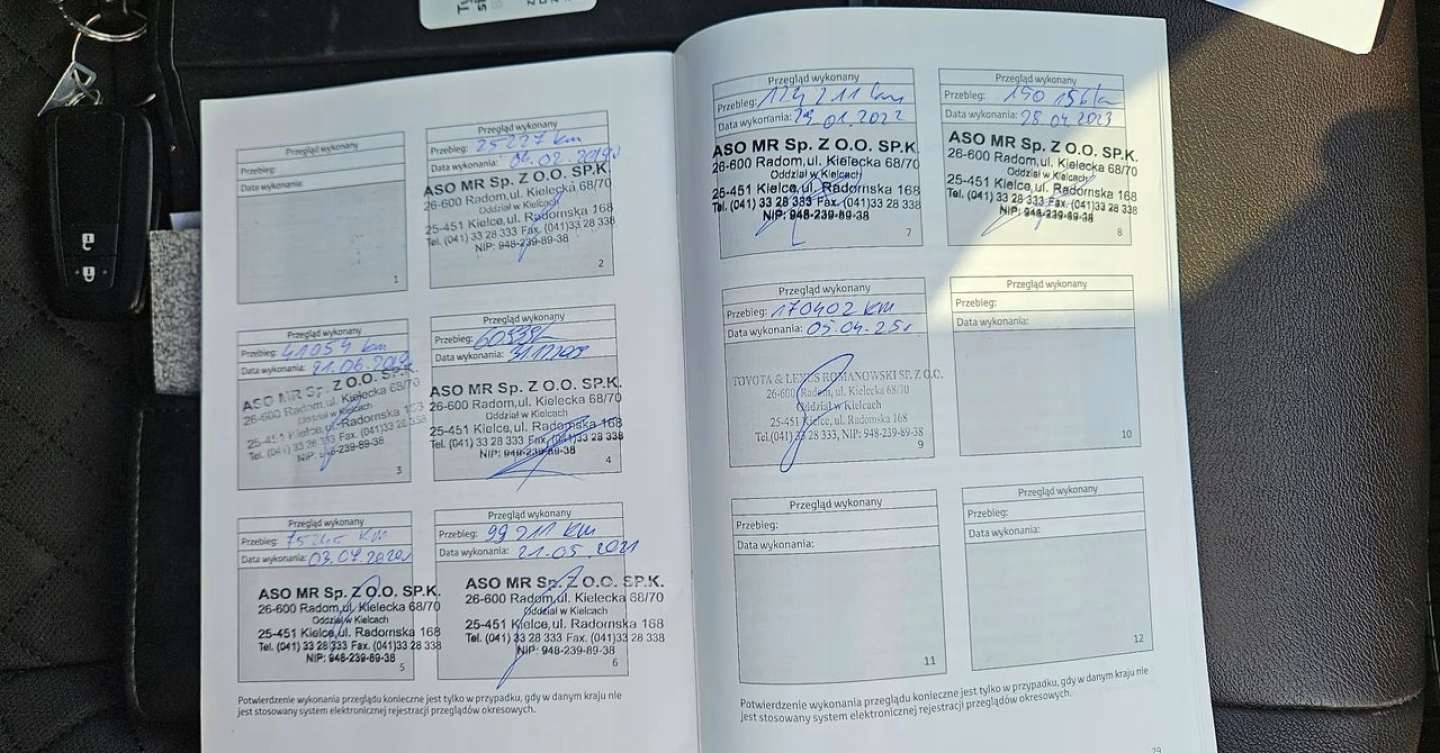 Przegląd wykonany
Przebieg:
Data wykonania:
1
Przegląd wykonany
Przebieg: 25227 km
Data wykonania: 04.02.2019r
ASO MR Sp. Z O.O. SP.K.
26-600 Radom, ul. Kielecka 68/70
Oddział w Kielcach
25-451 Kielce, ul. Radomska 168
Tel. (041) 33 28 333 Fax. (041)33 28 338
NIP: 948-239-89-38
2
Przegląd wykonany
Przebieg: 41054 km
Data wykonania: 21.06.2019r
ASO MR Sp. Z O.O. SP.K.
26-600 Radom, ul. Kielecka 68/70
Oddział w Kielcach
25-451 Kielce, ul. Radomska 168
Tel. (041) 33 28 333 Fax. (041)33 28 338
NIP: 948-239-89-38
3
Przegląd wykonany
Przebieg:
Data wykonania:
ASO MR Sp. Z O.O. SP.K.
26-600 Radom, ul. Kielecka 68/70
Oddział w Kielcach
25-451 Kielce, ul. Radomska 168
Tel. (041) 33 28 333 Fax. (041)33 28 338
NIP: 948-239-89-38
4
Przegląd wykonany
Przebieg: km
Data wykonania: 03.07.2020r
ASO MR Sp. Z O.O. SP.K.
26-600 Radom, ul. Kielecka 68/70
Oddział w Kielcach
25-451 Kielce, ul. Radomska 168
Tel. (041) 33 28 333 Fax. (041)33 28 338
NIP: 948-239-89-38
5
Przegląd wykonany
Przebieg: 99 211 km
Data wykonania: 21.05.2021
ASO MR Sp. Z O.O. SP.K.
26-600 Radom, ul. Kielecka 68/70
Oddział w Kielcach
25-451 Kielce, ul. Radomska 168
Tel. (041) 33 28 333 Fax. (041)33 28 338
NIP: 948-239-89-38
6
Potwierdzenie wykonania przeglądu konieczne jest tylko w przypadku, gdy w danym kraju nie
jest stosowany system elektronicznej rejestracji przeglądów okresowych.
Przegląd wykonany
Przebieg: 124 211 km
Data wykonania: 29.01.2022
ASO MR Sp. Z O.O. SP.K.
26-600 Radom, ul. Kielecka 68/70
Oddział w Kielcach
25-451 Kielce, ul. Radomska 168
Tel. (041) 33 28 333 Fax. (041)33 28 338
NIP: 948-239-89-38
7
Przegląd wykonany
Przebieg: 150 156 km
Data wykonania: 28.04.2023
ASO MR Sp. Z O.O. SP.K.
26-600 Radom, ul. Kielecka 68/70
Oddział w Kielcach
25-451 Kielce, ul. Radomska 168
Tel. (041) 33 28 333 Fax. (041)33 28 338
NIP: 948-239-89-38
8
Przegląd wykonany
Przebieg: 170402 km
Data wykonania: 05.04.25r
TOYOTA & LEXUS ROMANOWSKI SP. Z O.O.
26-600 Radom, ul. Kielecka 68/70
Oddział w Kielcach
25-451 Kielce, ul. Radomska 168
Tel.(041) 33 28 333, NIP: 948-239-89-38
9
Przegląd wykonany
Przebieg:
Data wykonania:
10
Przegląd wykonany
Przebieg:
Data wykonania:
11
Przegląd wykonany
Przebieg:
Data wykonania:
12
Potwierdzenie wykonania przeglądu konieczne jest tylko w przypadku, gdy w danym kraju nie
jest stosowany system elektronicznej rejestracji przeglądów okresowych.
29